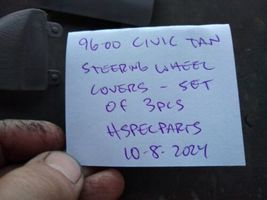 96-00 CIVIC TAN
STEERING WHEEL
COVERS - SET
OF 3PCS
HSPECPARTS
10-8-2024